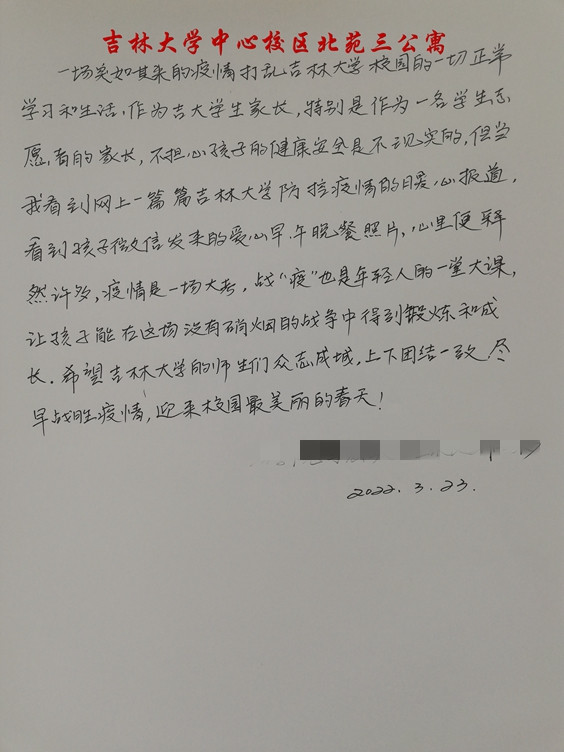 吉林大学中心校区北苑三公寓
一场突如其来的疫情打乱吉林大学校园的一切正常
学习和生活,作为吉大学生家长,特别是作为一名学生志
愿者的家长,不担心孩子的健康安全是不现实的,但当
我看到网上一篇篇吉林大学防控疫情的暖心报道,
看到孩子微信发来的爱心早、午晚餐照片,心里便释
然许多,疫情是一场大考,战“疫”也是年轻人的一堂大课,
让孩子能在这场没有硝烟的战争中得到锻炼和成
长.希望吉林大学的师生们众志成城,上下团结一致尽
早战胜疫情,迎来校园最美丽的春天!
2022.3.23.